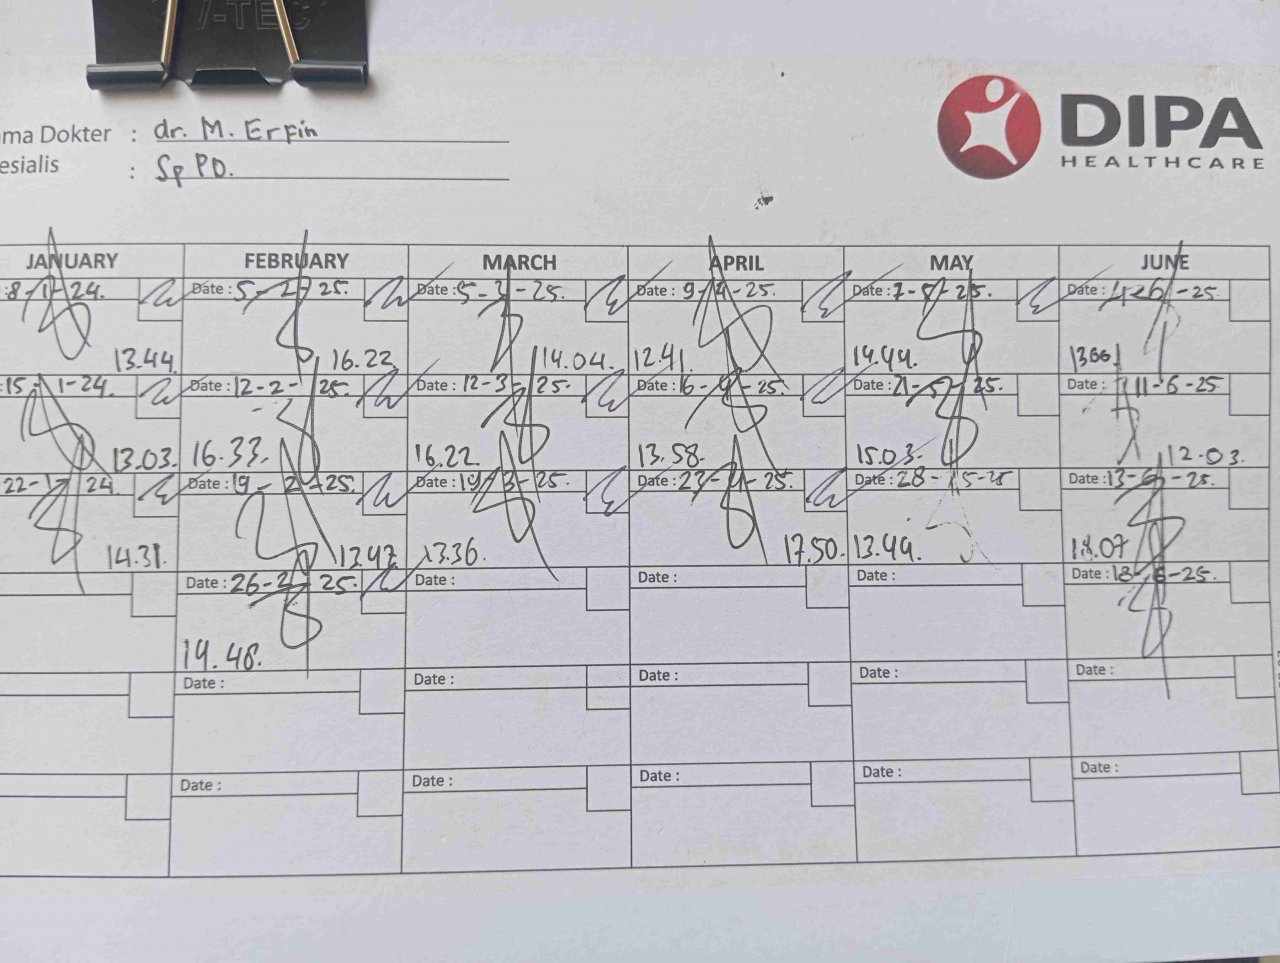 ma Dokter : dr. M. Erfin
esialis : Sp PD.
DIPA
HEALTHCARE
JANUARY FEBRUARY MARCH APRIL MAY JUNE
:8-1-24. Date : 5-2-25. Date : 5-3-25. Date : 9-4-25. Date : 7-5-25. Date : 4-6-25
13.44 16.22 14.04. 12.41. 14.44.
:15-1-24. Date : 12-2-25. Date : 12-3-25. Date : 16-4-25. Date : 21-5-25. Date : 11-6-25
13.03. 16.33. 16.22. 13.58. 15.03. 12.03.
22-1-24. Date : 19-2-25. Date : 19-3-25. Date : 23-4-25. Date : 28-5-25 Date : 13-6-25.
14.31. 13.47 13.36. 17.50. 13.49. 18.07
Date : 26-2-25. Date : Date : Date : Date : 18-6-25.
14.48.
Date : Date : Date : Date : Date :
Date : Date : Date : Date : Date :